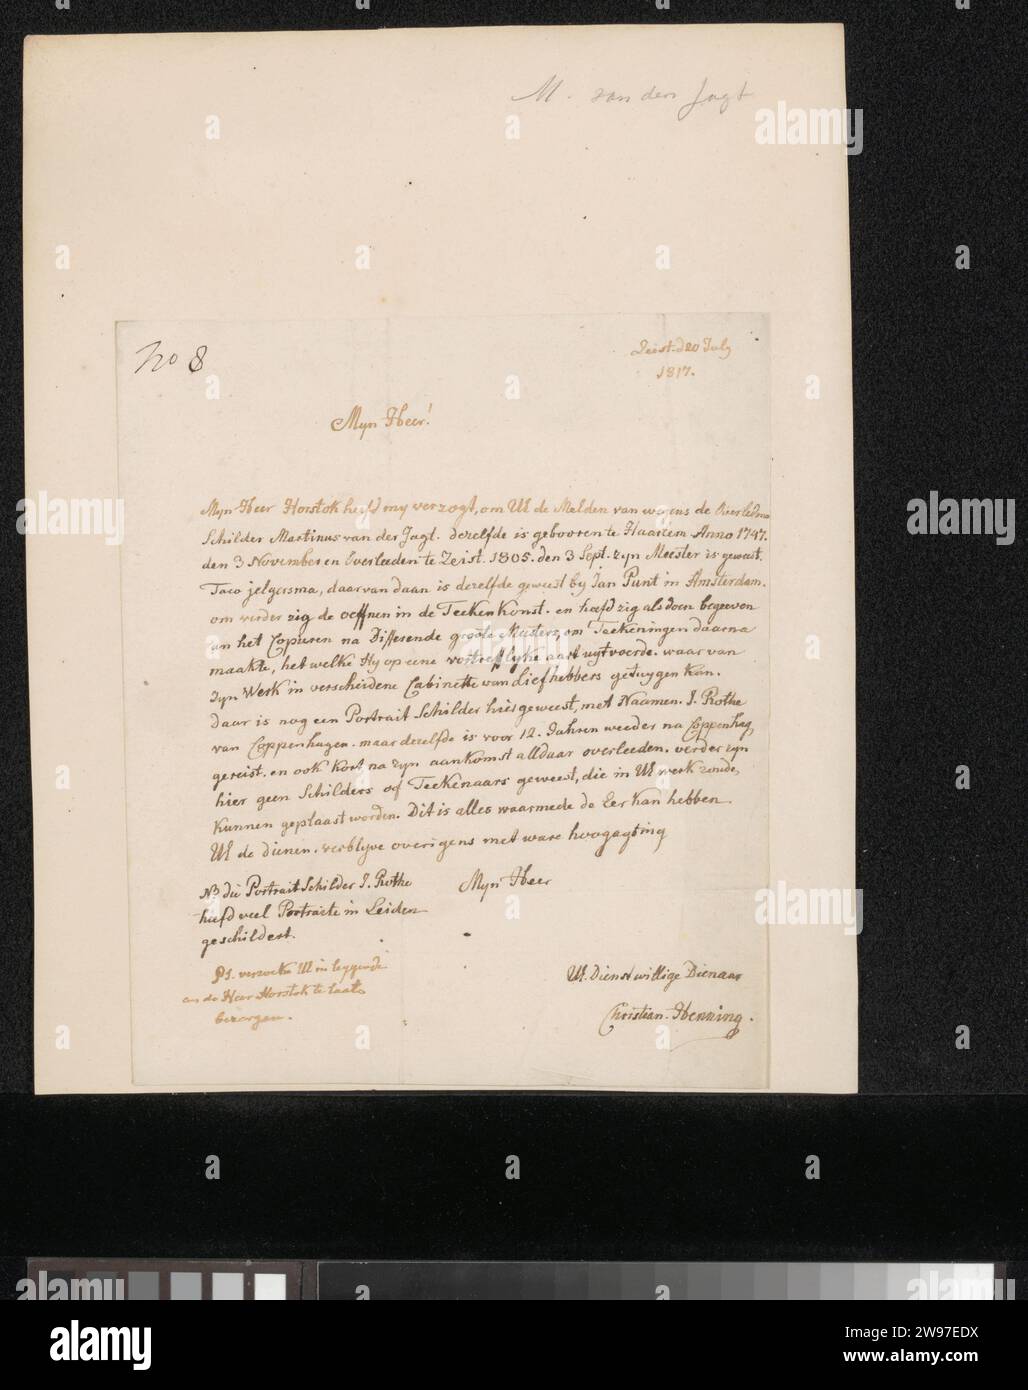 M. van der Jagt
No 8
Zeist. d 20 July
1817.
Myn Heer!
Myn Heer Horstok heefd my verzogt, om Ul de Melden van wegens de Overledene
Schilder Martinus van der Jagt. dezelfde is gebooren te Haarlem Anno 1747.
den 3 November en Overleeden te Zeist. 1805. den 3 Sept. zyn Meester is geweest.
Taco jelgersma, daar van daan is dezelfde geweest by Jan Punt in Amsterdam.
om verder zig de oeffnen in de Teekenkonst. en heefd zig als doen begeeven
an het Copieren na Differende groote Meesters, om Teekeningen daar na
maakte, het welke Hy op eene vortreflyke aart uytvoerde. waar van
zyn Werk in verscheidene Cabinette van Liefhebbers getuygen kan.
daar is nog een Portrait Schilder hier geweest, met Naamen. J. Rothe
van Coppenhagen. maar dezelfde is voor 12. Jahren weeder na Coppenhag,
gereist. en ook kort na zyn aankomst alldaar overleeden. verder zyn
hier geen Schilders of Teekenaars geweest, die in Ul werk zonde,
kunnen geplaast worden. Dit is alles waarmede de Eer kan hebben
Ul de dienen. verblyve overigens met ware hoogagting
Myn Heer
NB die Portrait Schilder J. Rothe
heefd veel Portraite in Leiden
geschildert.
PS. verzoeke Ul in leggende
an de Heer Horstok te laate
bezorgen.
Ul. Dienstwillige Dienaar
Christian. Henning.
alamy
Image ID: 2W97EDX
www.alamy.com